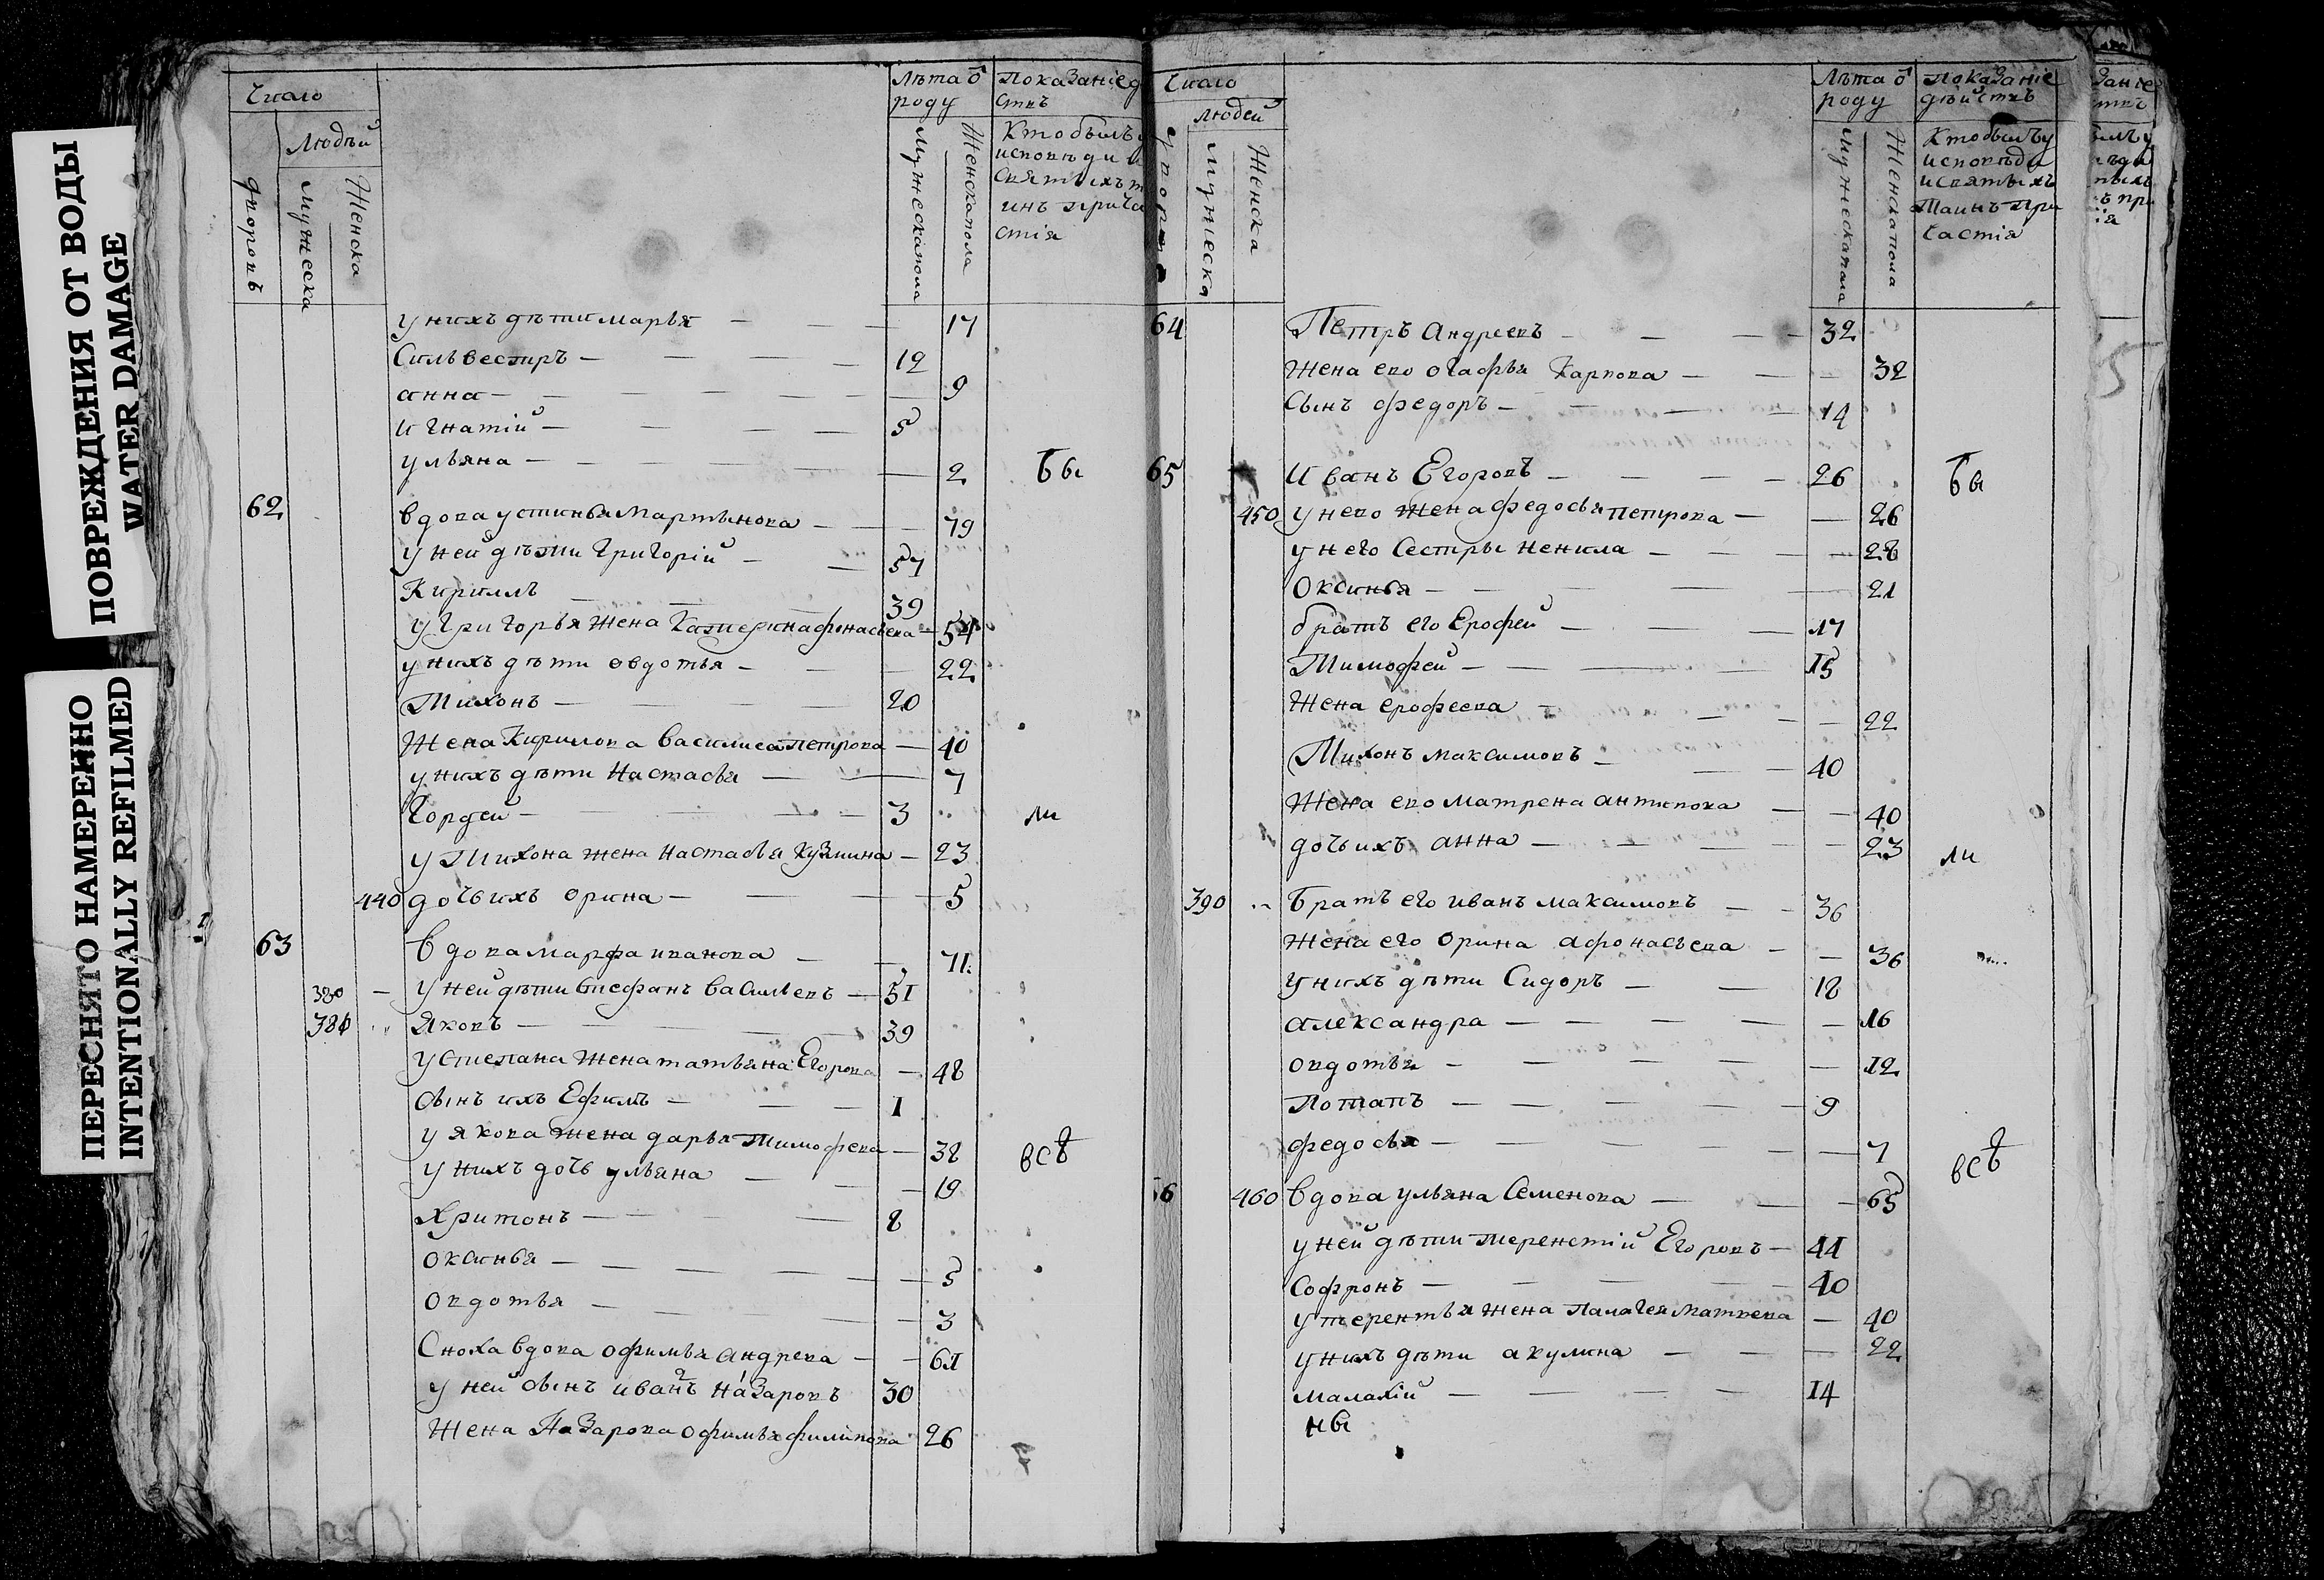 ПОВРЕЖДЕНИЯ ОТ ВОДЫ
WATER DAMAGE
ПЕРЕСНЯТО НАМЕРЕННО
INTENTIONALLY REFILMED
Число
Людѣй
дворовъ
мужеска
Женска
Лѣта ѿ роду
мужеска пола
Женска пола
показаніе д
ствъ
Кто былъ у
исповѣди и
святыхъ т
инъ прича
стія
у нихъ дѣти марья — 17
Сильвестръ — 12
анна — 9
игнатій — 5
ульяна — 2 бы
62 вдова устинья Мартынова — 79
у ней дѣти григорій — 57
Кириллъ — 39
у григорья жена Катерина афонасьева — 54
у нихъ дѣти овдотья — 22
Тихонъ — 20
Жена Кирилова василиса петрова — 40
у нихъ дѣти Настасья — 7
Гордей — 3 ли
у Тихона жена настасья кузмина — 23
440 дочь ихъ орина — 5
63 вдова марфа иванова — 71
380 — у ней дѣти стефанъ васильевъ — 51
381 Яковъ — 39
у степана жена татьяна Егорова — 48
сынъ ихъ Ефимъ — 1
у якова жена дарья тимофева — 38 всѣ
у нихъ дочь ульяна — 19
Хритонъ — 8
оксинья — 5
овдотья — 3
Сноха вдова офимья андрева — 61
у ней сынъ иванъ назаровъ 30
Жена Назарова офимья филипова 26
Число
людей
дворовъ
мужеска
Женска
Лѣта ѿ роду
мужеска пола
Женска пола
показаніе
дѣйствъ
Кто былъ у
исповѣди
и святыхъ
Таинъ при
частія
64 Петръ Андреевъ — 32
Жена ево огафья Карпова — 32
Сынъ федоръ — 14
65 Иванъ Егоровъ — 26 бы
450 у нево жена федосья петрова — 26
у него сестры ненила — 28
Оксинья — 21
братъ его Ерофей — 17
Тимофей — 15
Жена ерофеева — 22
Тихонъ максимовъ — 40
Жена ево матрена антипова — 40
дочь ихъ анна — 23 ли
390 Братъ его иванъ максимовъ — 36
Жена его орина афонасьева — 36
у нихъ дѣти Сидоръ — 18
александра — 16
овдотья — 12
Потапъ — 9
федосья — 7 всѣ
66 460 вдова ульяна Семенова — 65
у ней дѣти терентій Егоровъ — 41
Софронъ — 40
у терентья жена палагея матвева — 40
у нихъ дѣти акулина — 22
малахій — 14
ны